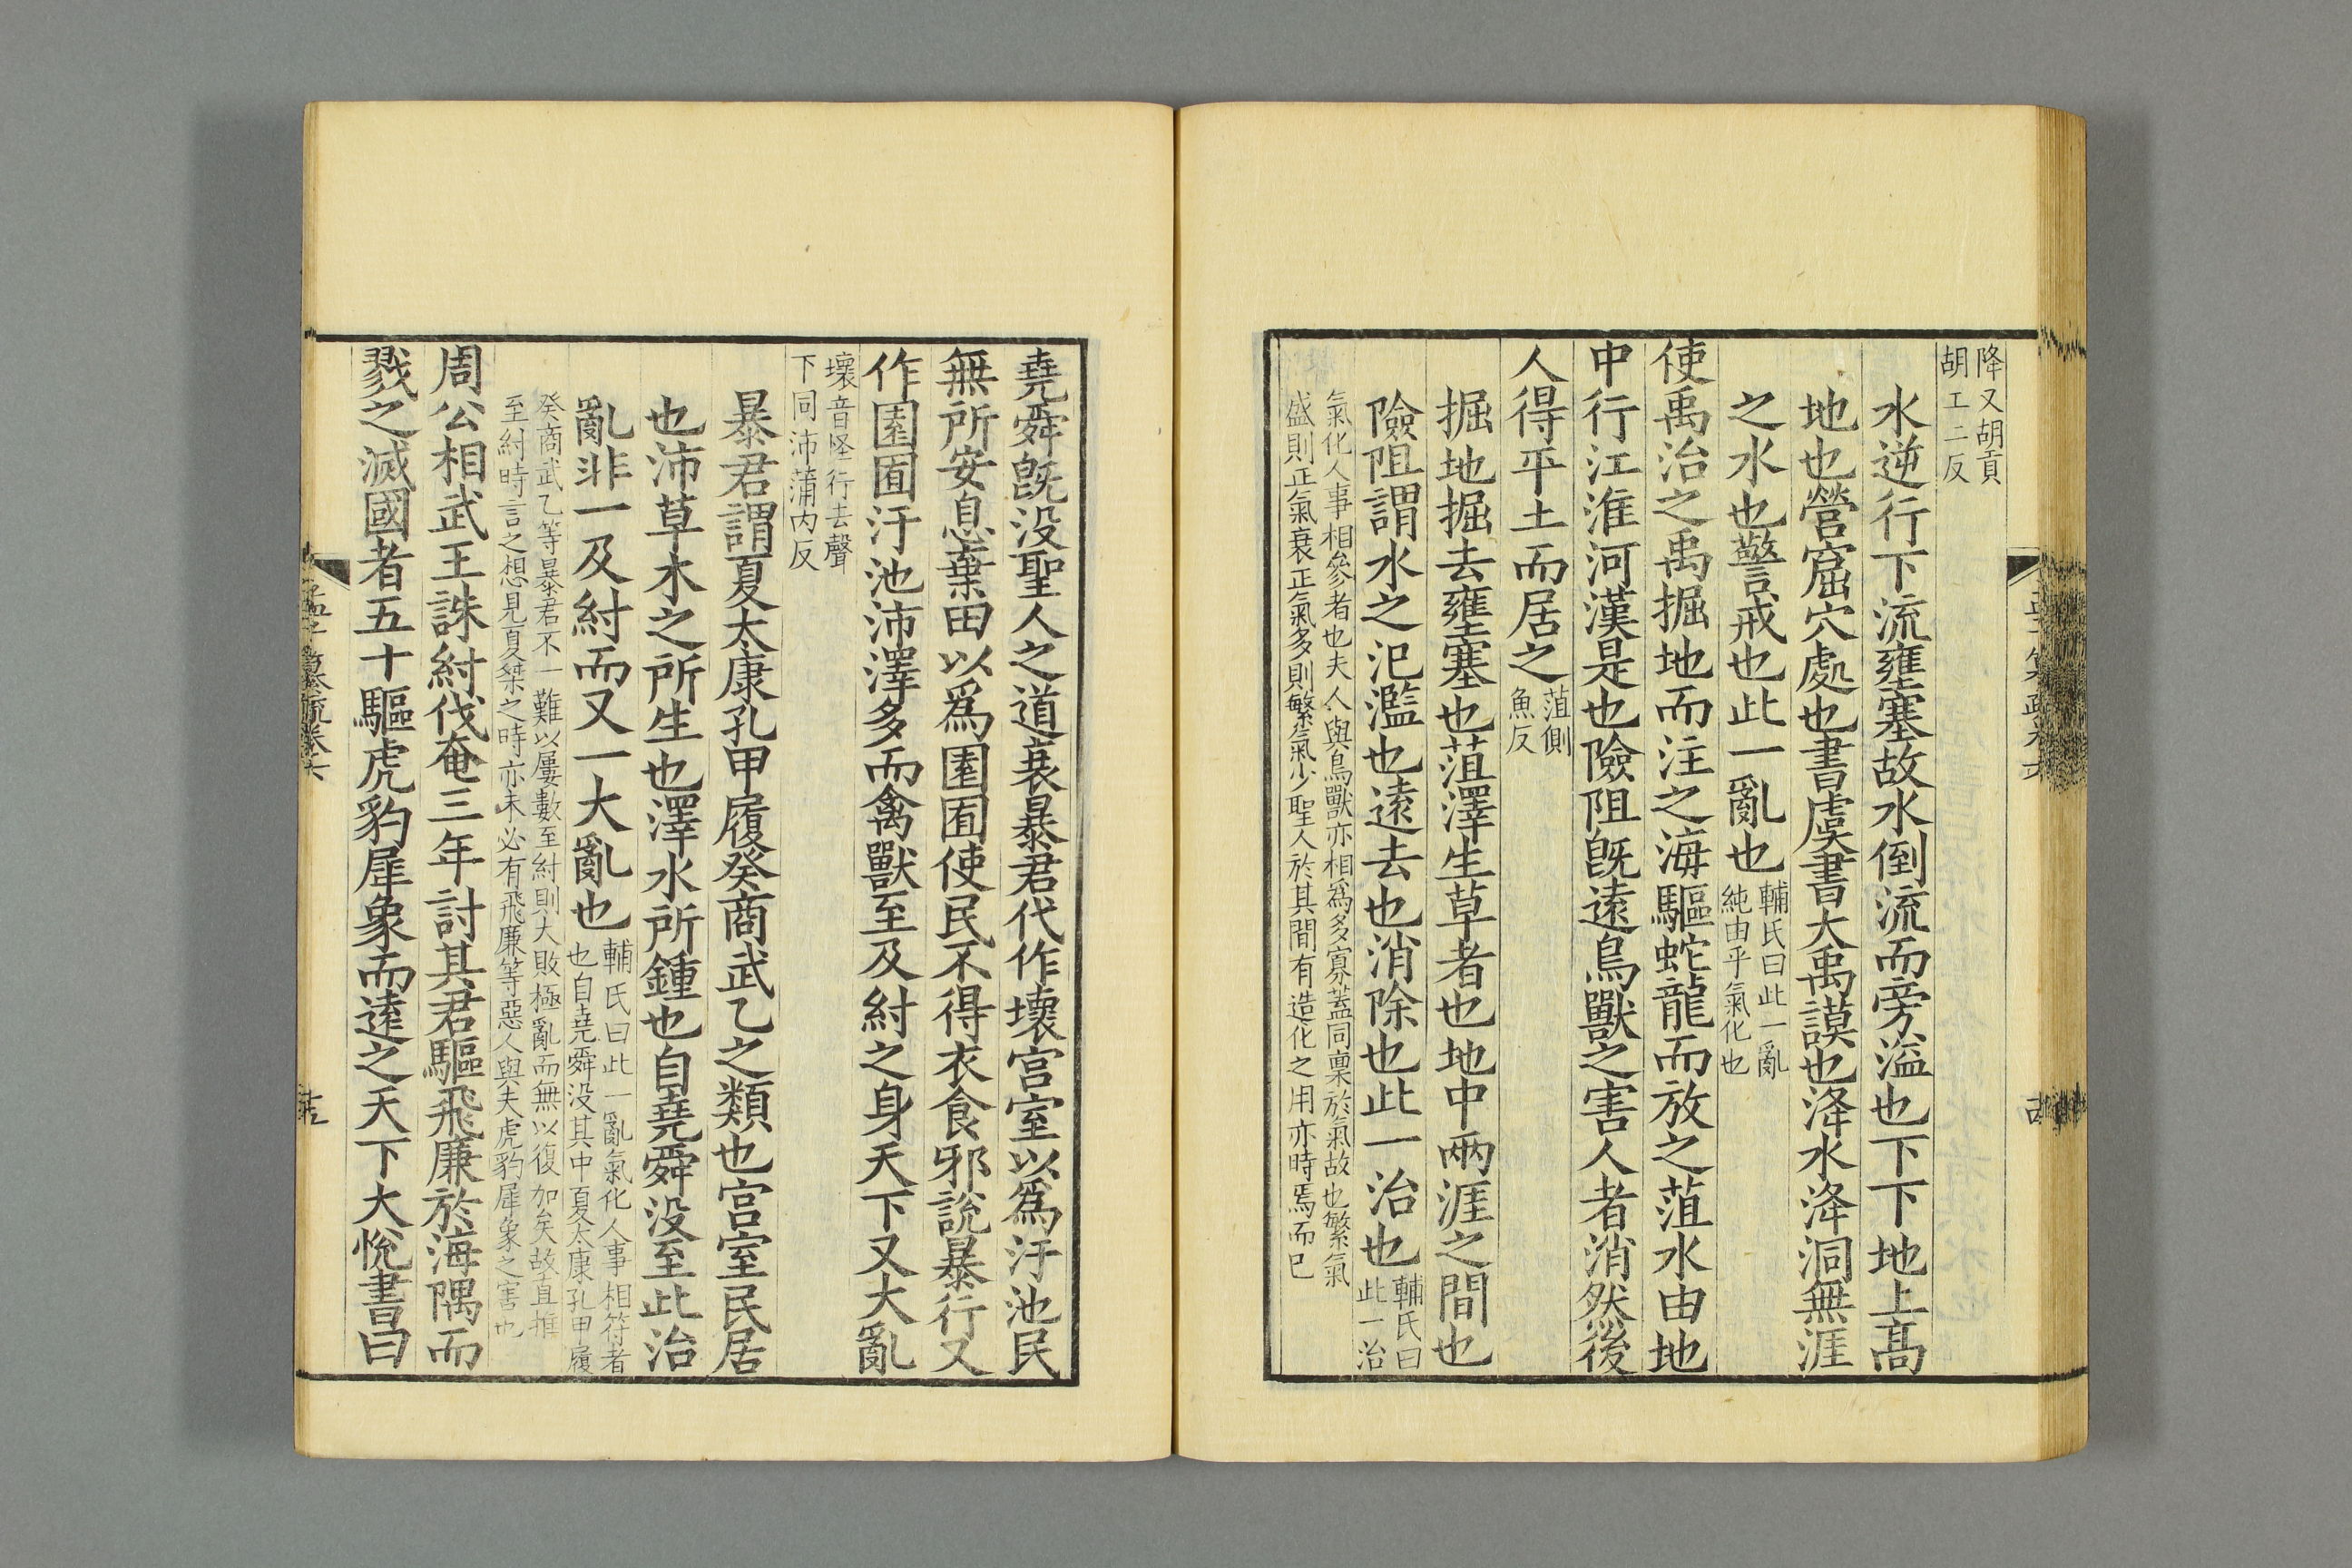 降又胡貢
胡工二反
水逆行下流壅塞故水倒流而旁溢也下下地上高
地也營窟穴處也書虞書大禹謨也洚水洚洞無涯
之水也警戒也此一亂也
輔氏曰此一亂
純由乎氣化也
使禹治之禹掘地而注之海驅蛇龍而放之菹水由地
中行江淮河漢是也險阻旣遠鳥獸之害人者消然後
人得平土而居之
菹側
魚反
掘地掘去壅塞也菹澤生草者也地中兩涯之間也
險阻謂水之氾濫也遠去也消除也此一治也
輔氏曰
此一治
氣化人事相參者也夫人與鳥獸亦相爲多寡蓋同稟於氣故也繁氣
盛則正氣衰正氣多則繁氣少聖人於其間有造化之用亦時焉而已
堯舜旣没聖人之道衰暴君代作壞宫室以爲汙池民
無所安息棄田以爲園囿使民不得衣食邪說暴行又
作園囿汙池沛澤多而禽獸至及紂之身天下又大亂
壞音怪行去聲
下同沛蒲内反
暴君謂夏太康孔甲履癸商武乙之類也宫室民居
也沛草木之所生也澤水所鍾也自堯舜没至此治
亂非一及紂而又一大亂也
輔氏曰此一亂氣化人事相符者
也自堯舜没其中夏太康孔甲履
癸商武乙等暴君不一難以屢數至紂則大敗極亂而無以復加矣故直推
至紂時言之想見夏桀之時亦未必有飛廉等惡人與夫虎豹犀象之害也
周公相武王誅紂伐奄三年討其君驅飛廉於海隅而
戮之滅國者五十驅虎豹犀象而遠之天下大悅書曰
孟子纂疏卷六
十五